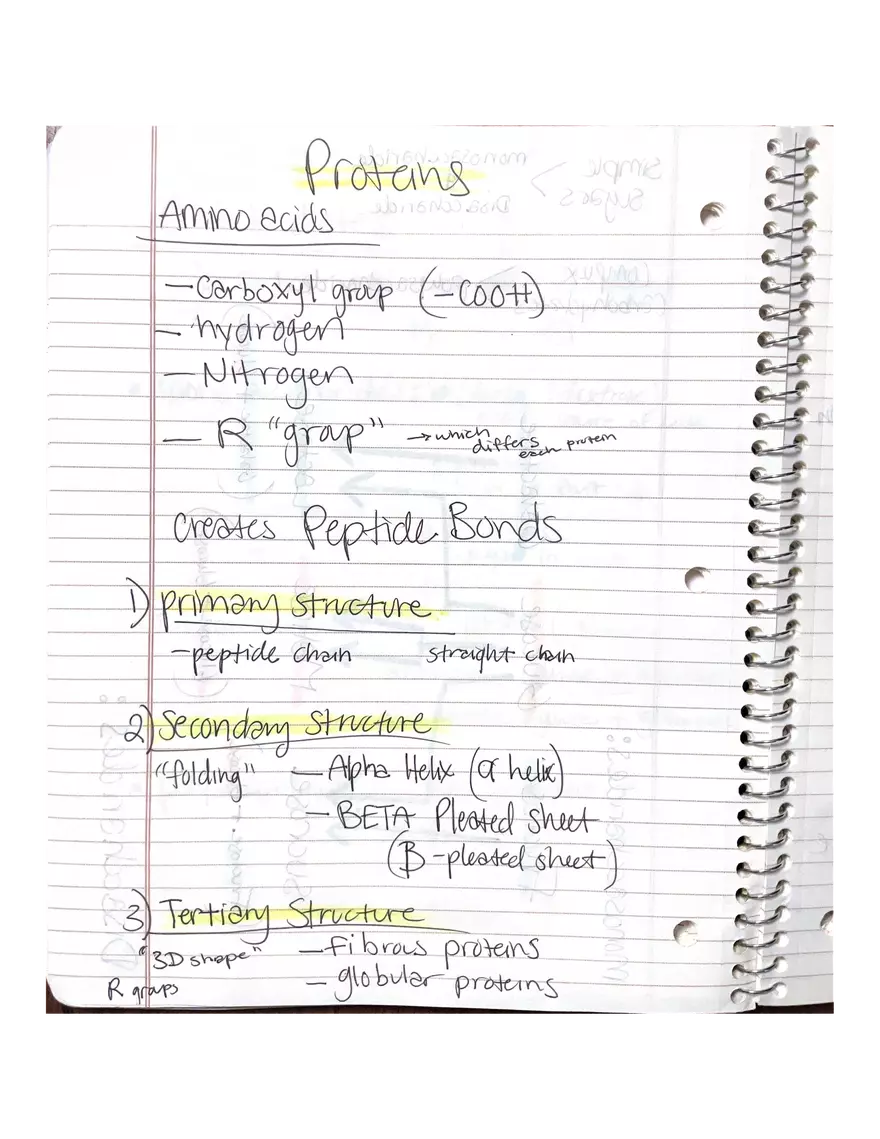 Proteins
Amino acids
- Carboxyl group (-COOH)
- hydrogen
- Nitrogen
- R "group" → which differs each protein
Creates Peptide Bonds
1) primary structure
- peptide chain straight chain
2) Secondary Structure
"folding" - Alpha Helix (α helix)
- BETA Pleated Sheet
(B-pleated sheet)
3) Tertiary Structure
"3D shape" - Fibrous proteins
R groups - globular proteins